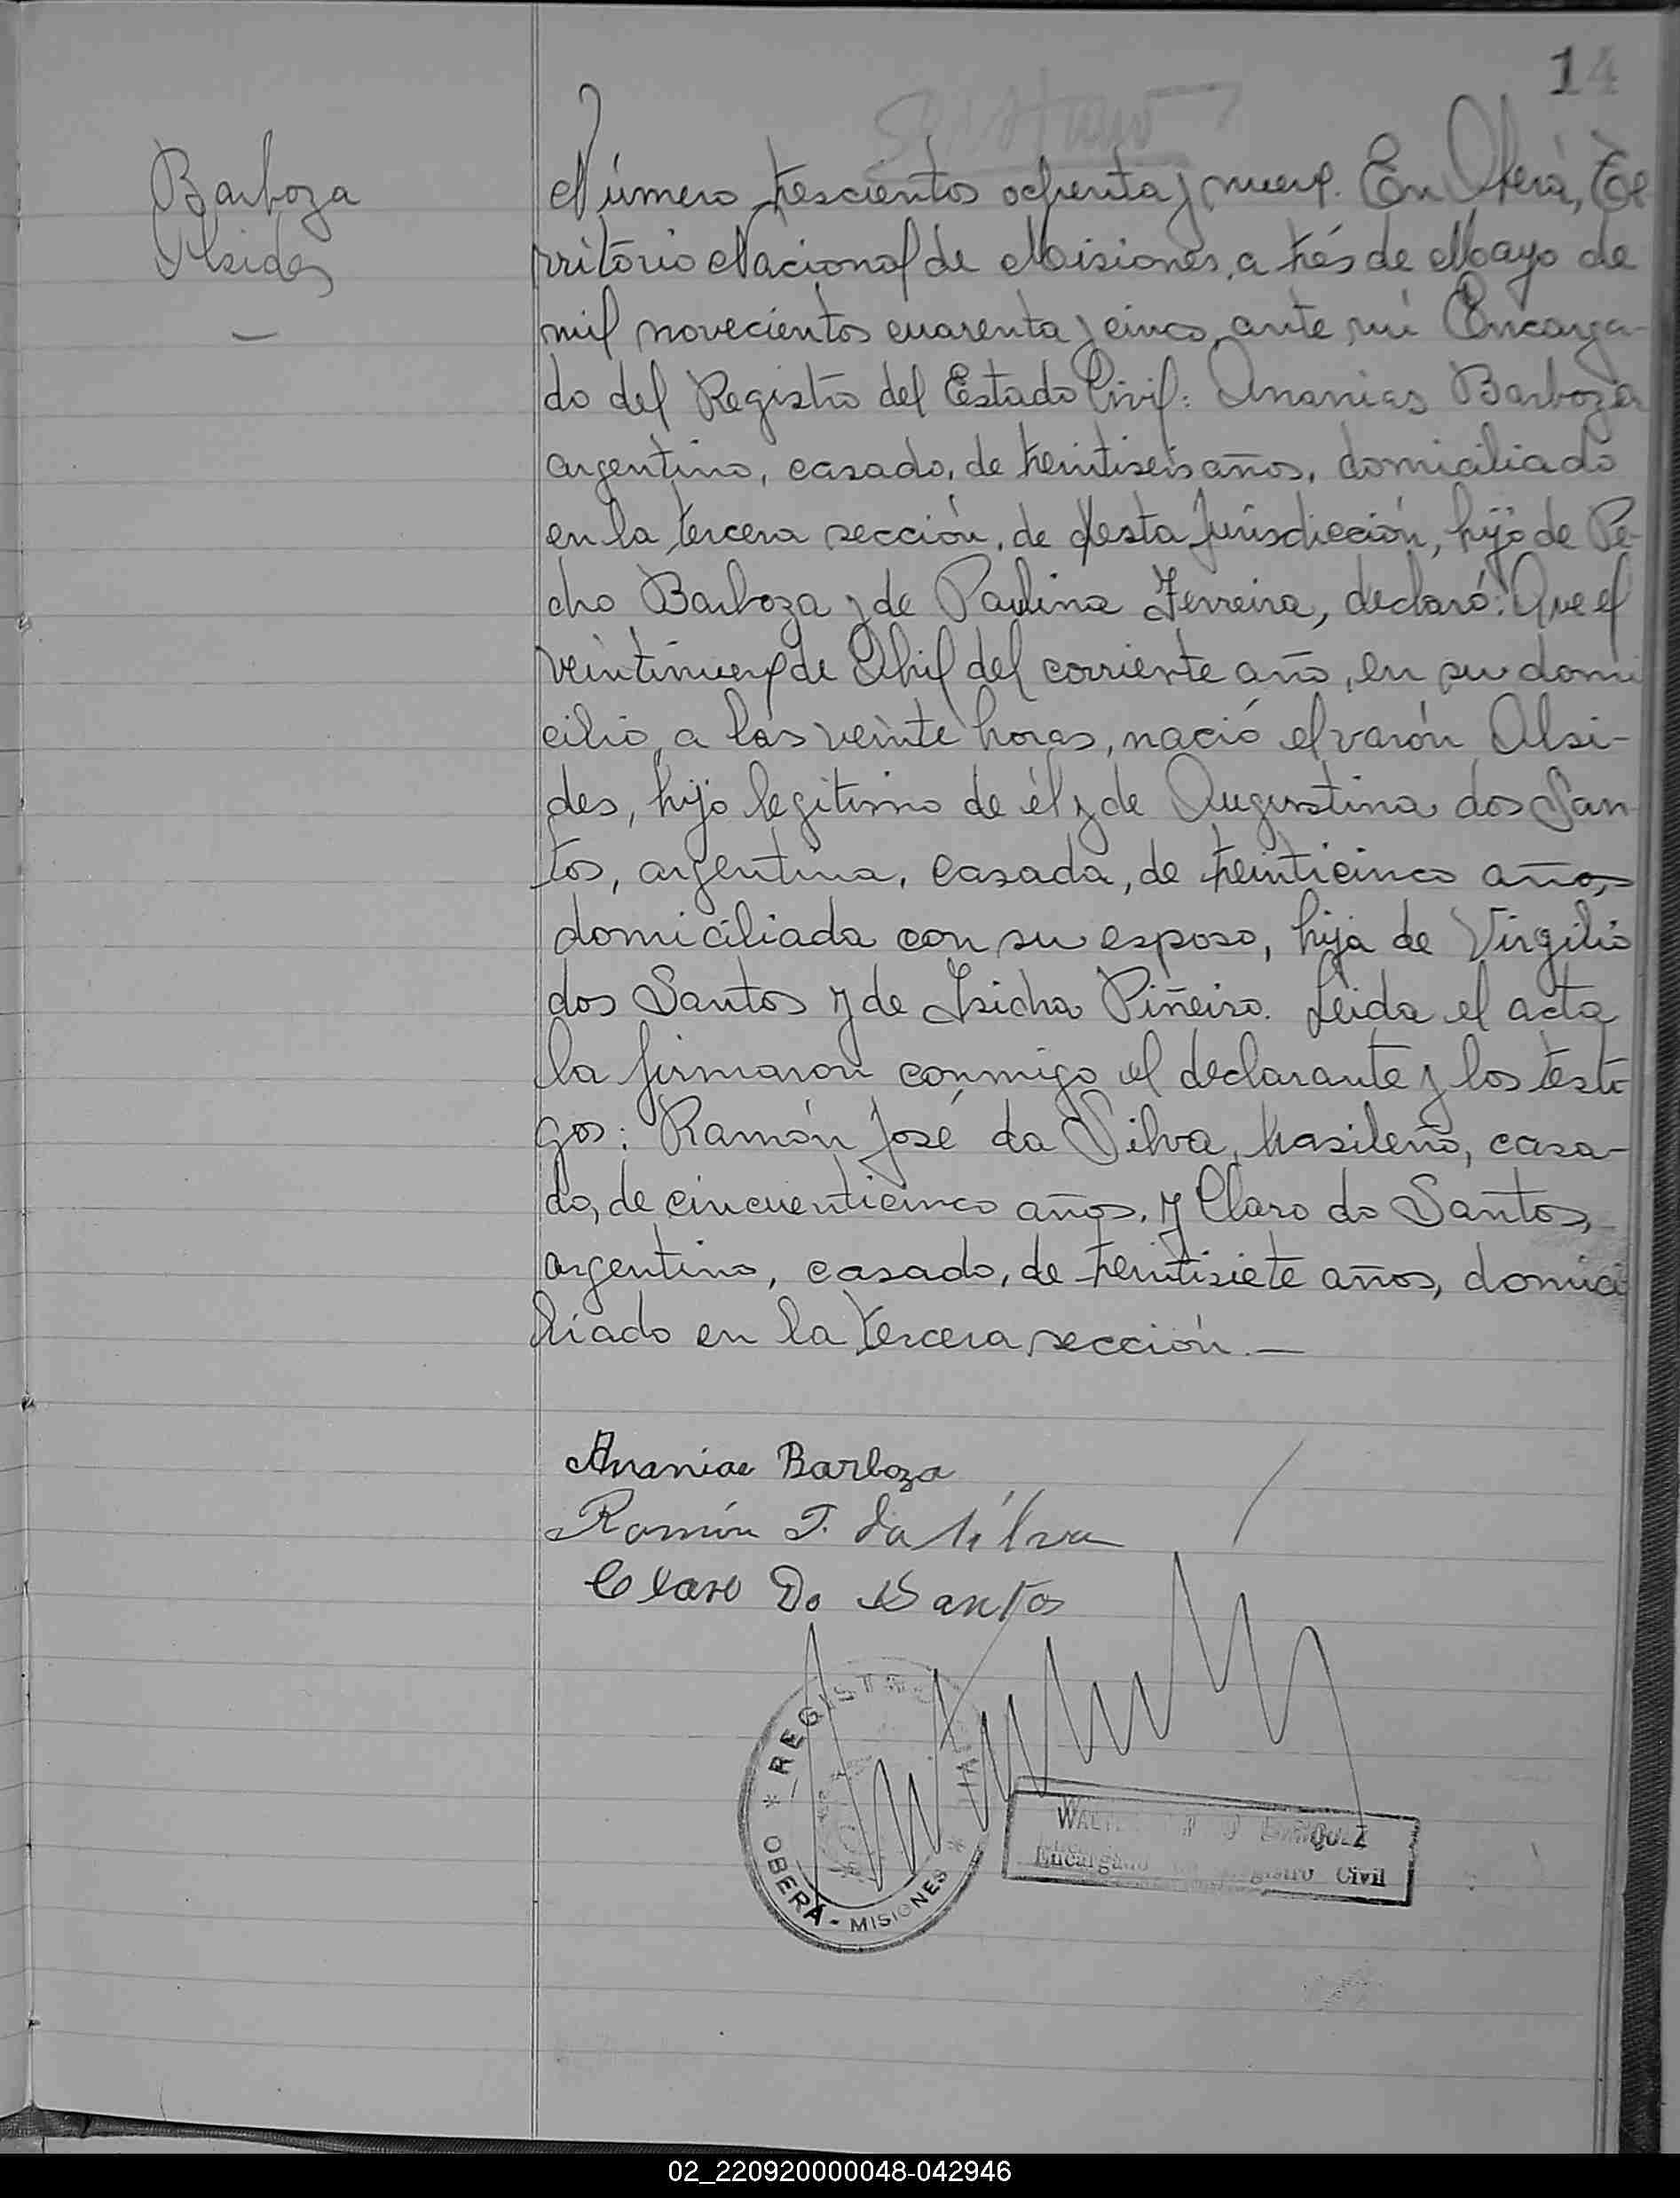 14
Barboza
Alsides
—
Número trescientos ochenta y nueve. En Oberá, Te
rritorio Nacional de Misiones, a trés de Mayo de
mil novecientos cuarenta y cinco, ante mi Encarga-
do del Registro del Estado Civil: Ananias Barboza
argentino, casado, de treintiseis años, domiciliado
en la tercera sección, de esta jurisdicción, hijo de Pe-
dro Barboza y de Paulina Ferreira, declaró: Que el
veintinueve de Abril del corriente año, en su domi
cilio, a las veinte horas, nació el varón Alsi-
des, hijo legitimo de él y de Augustina dos San
tos, argentina, casada, de treinticinco años,
domiciliada con su esposo, hija de Virgilio
dos Santos y de Isicha Piñeiro. Leida el acta
la firmaron conmigo el declarante y los testi
gos: Ramón José da Silva, brasileño, casa-
do, de cincuenticinco años, y Claro do Santos,
argentino, casado, de treintisiete años, domici
liado en la tercera sección.—
Ananias Barboza
Ramón J. da Silva
Claro Do Santos
* REGISTRO CIVIL *
OBERÁ - MISIONES
Encargado Registro Civil
02_220920000048-042946